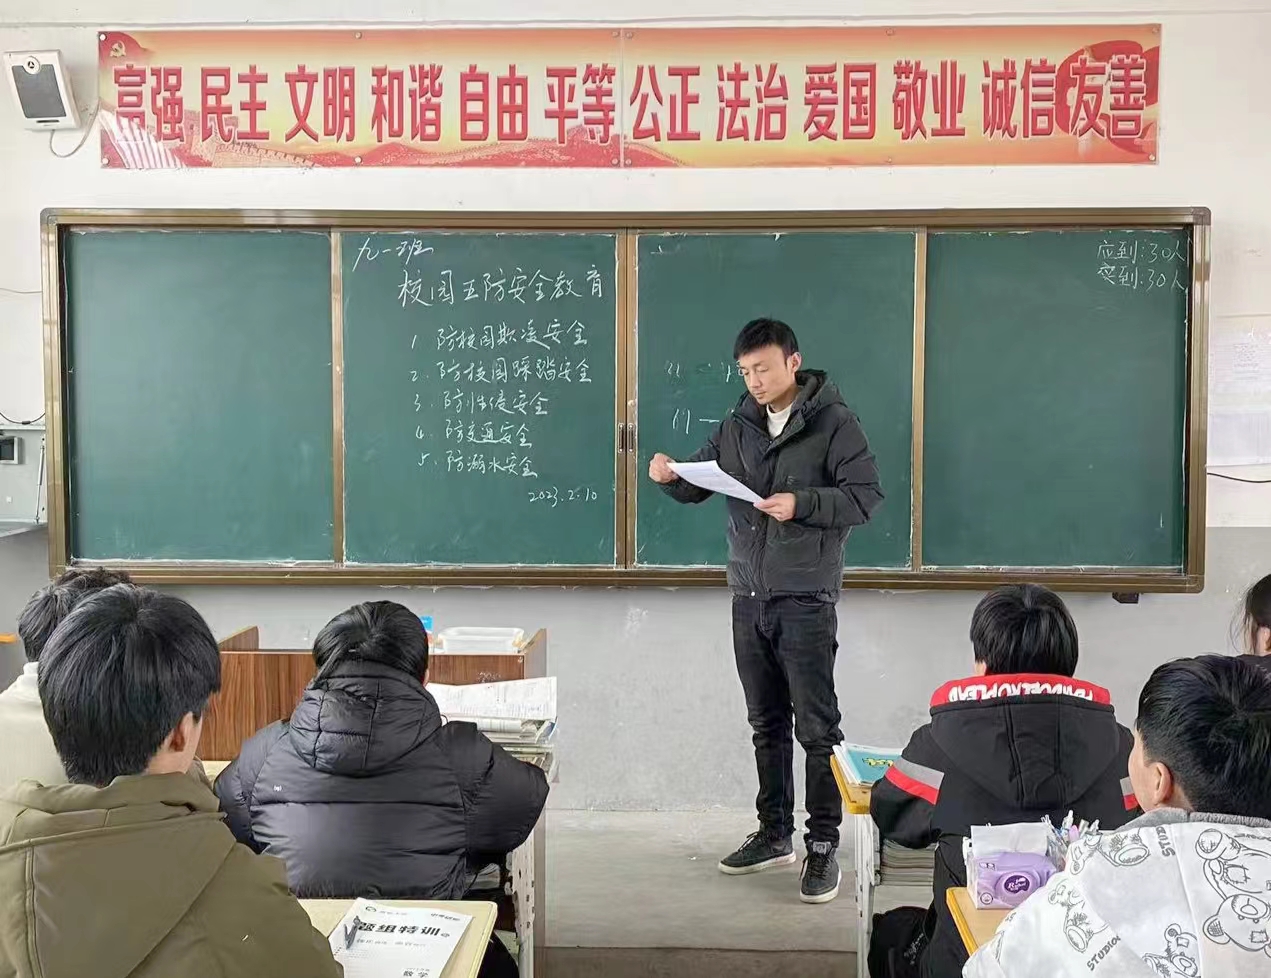 富强 民主 文明 和谐 自由 平等 公正 法治 爱国 敬业 诚信 友善
九一班
校园五防安全教育
1 防校园欺凌安全
2. 防校园踩踏安全
3. 防性侵安全
4. 防交通安全
5. 防溺水安全
2023.2.10
应到:30人
实到:30人
题组特训
数学
STUDIO
STUDIO